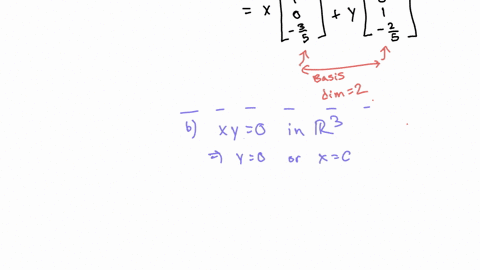 = x [1 0 -3/5] + y [0 1 -2/5]
Basis
dim=2
b) xy=0 in ℝ³
⇒ y=0 or x=0